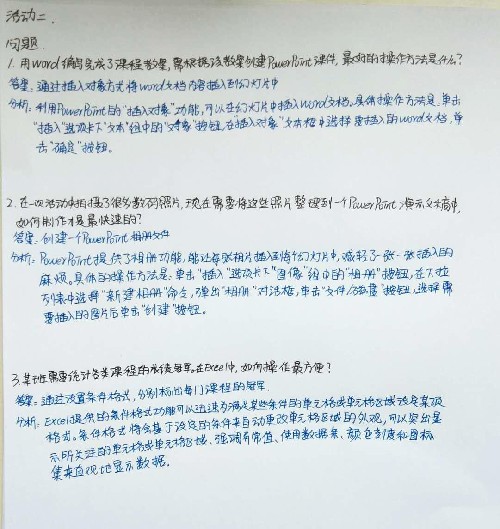 活动二.
问题
1. 用word编写完成了课程教案,需根据该教案创建PowerPoint课件, 最好的操作方法是什么?
答案: 通过插入对象方式将word文档内容插入到幻灯片中
分析: 利用PowerPoint的"插入对象"功能,可以在幻灯片中插入word文档,具体操作方法是:单击
"插入"选项卡下"文本"组中的"对象"按钮,在插入对象"文本框中选择要插入的word文档,单
击"确定"按钮。
2. 在一次活动中拍摄了很多数码照片,现在需要将这些照片整理到一个PowerPoint演示文稿中,
如何制作才是最快速的?
答案: 创建一个PowerPoint相册文件
分析: PowerPoint提供了相册功能,能让每张相片插入到每个幻灯片中,减轻了一张一张插入的
麻烦。具体的操作方法是:单击"插入"选项卡下"图像"组中的"相册"按钮,在下拉
列表中选择"新建相册"命令,弹出"相册"对话框,单击"文件/磁盘"按钮,选择需
要插入的图片后单击"创建"按钮。
3. 某班需要统计各类课程的成绩冠军,在Excel中,如何操作最方便?
答案: 通过设置条件格式,分别标出每门课程的冠军.
分析: Excel提供的条件格式功能可以迅速为满足某些条件的单元格或单元格区域设定某项
格式。条件格式将会基于设定的条件来自动更改单元格区域的外观,可以突出显
示所关注的单元格或单元格区域、强调异常值、使用数据条、颜色刻度和图标
集来直观地显示数据.